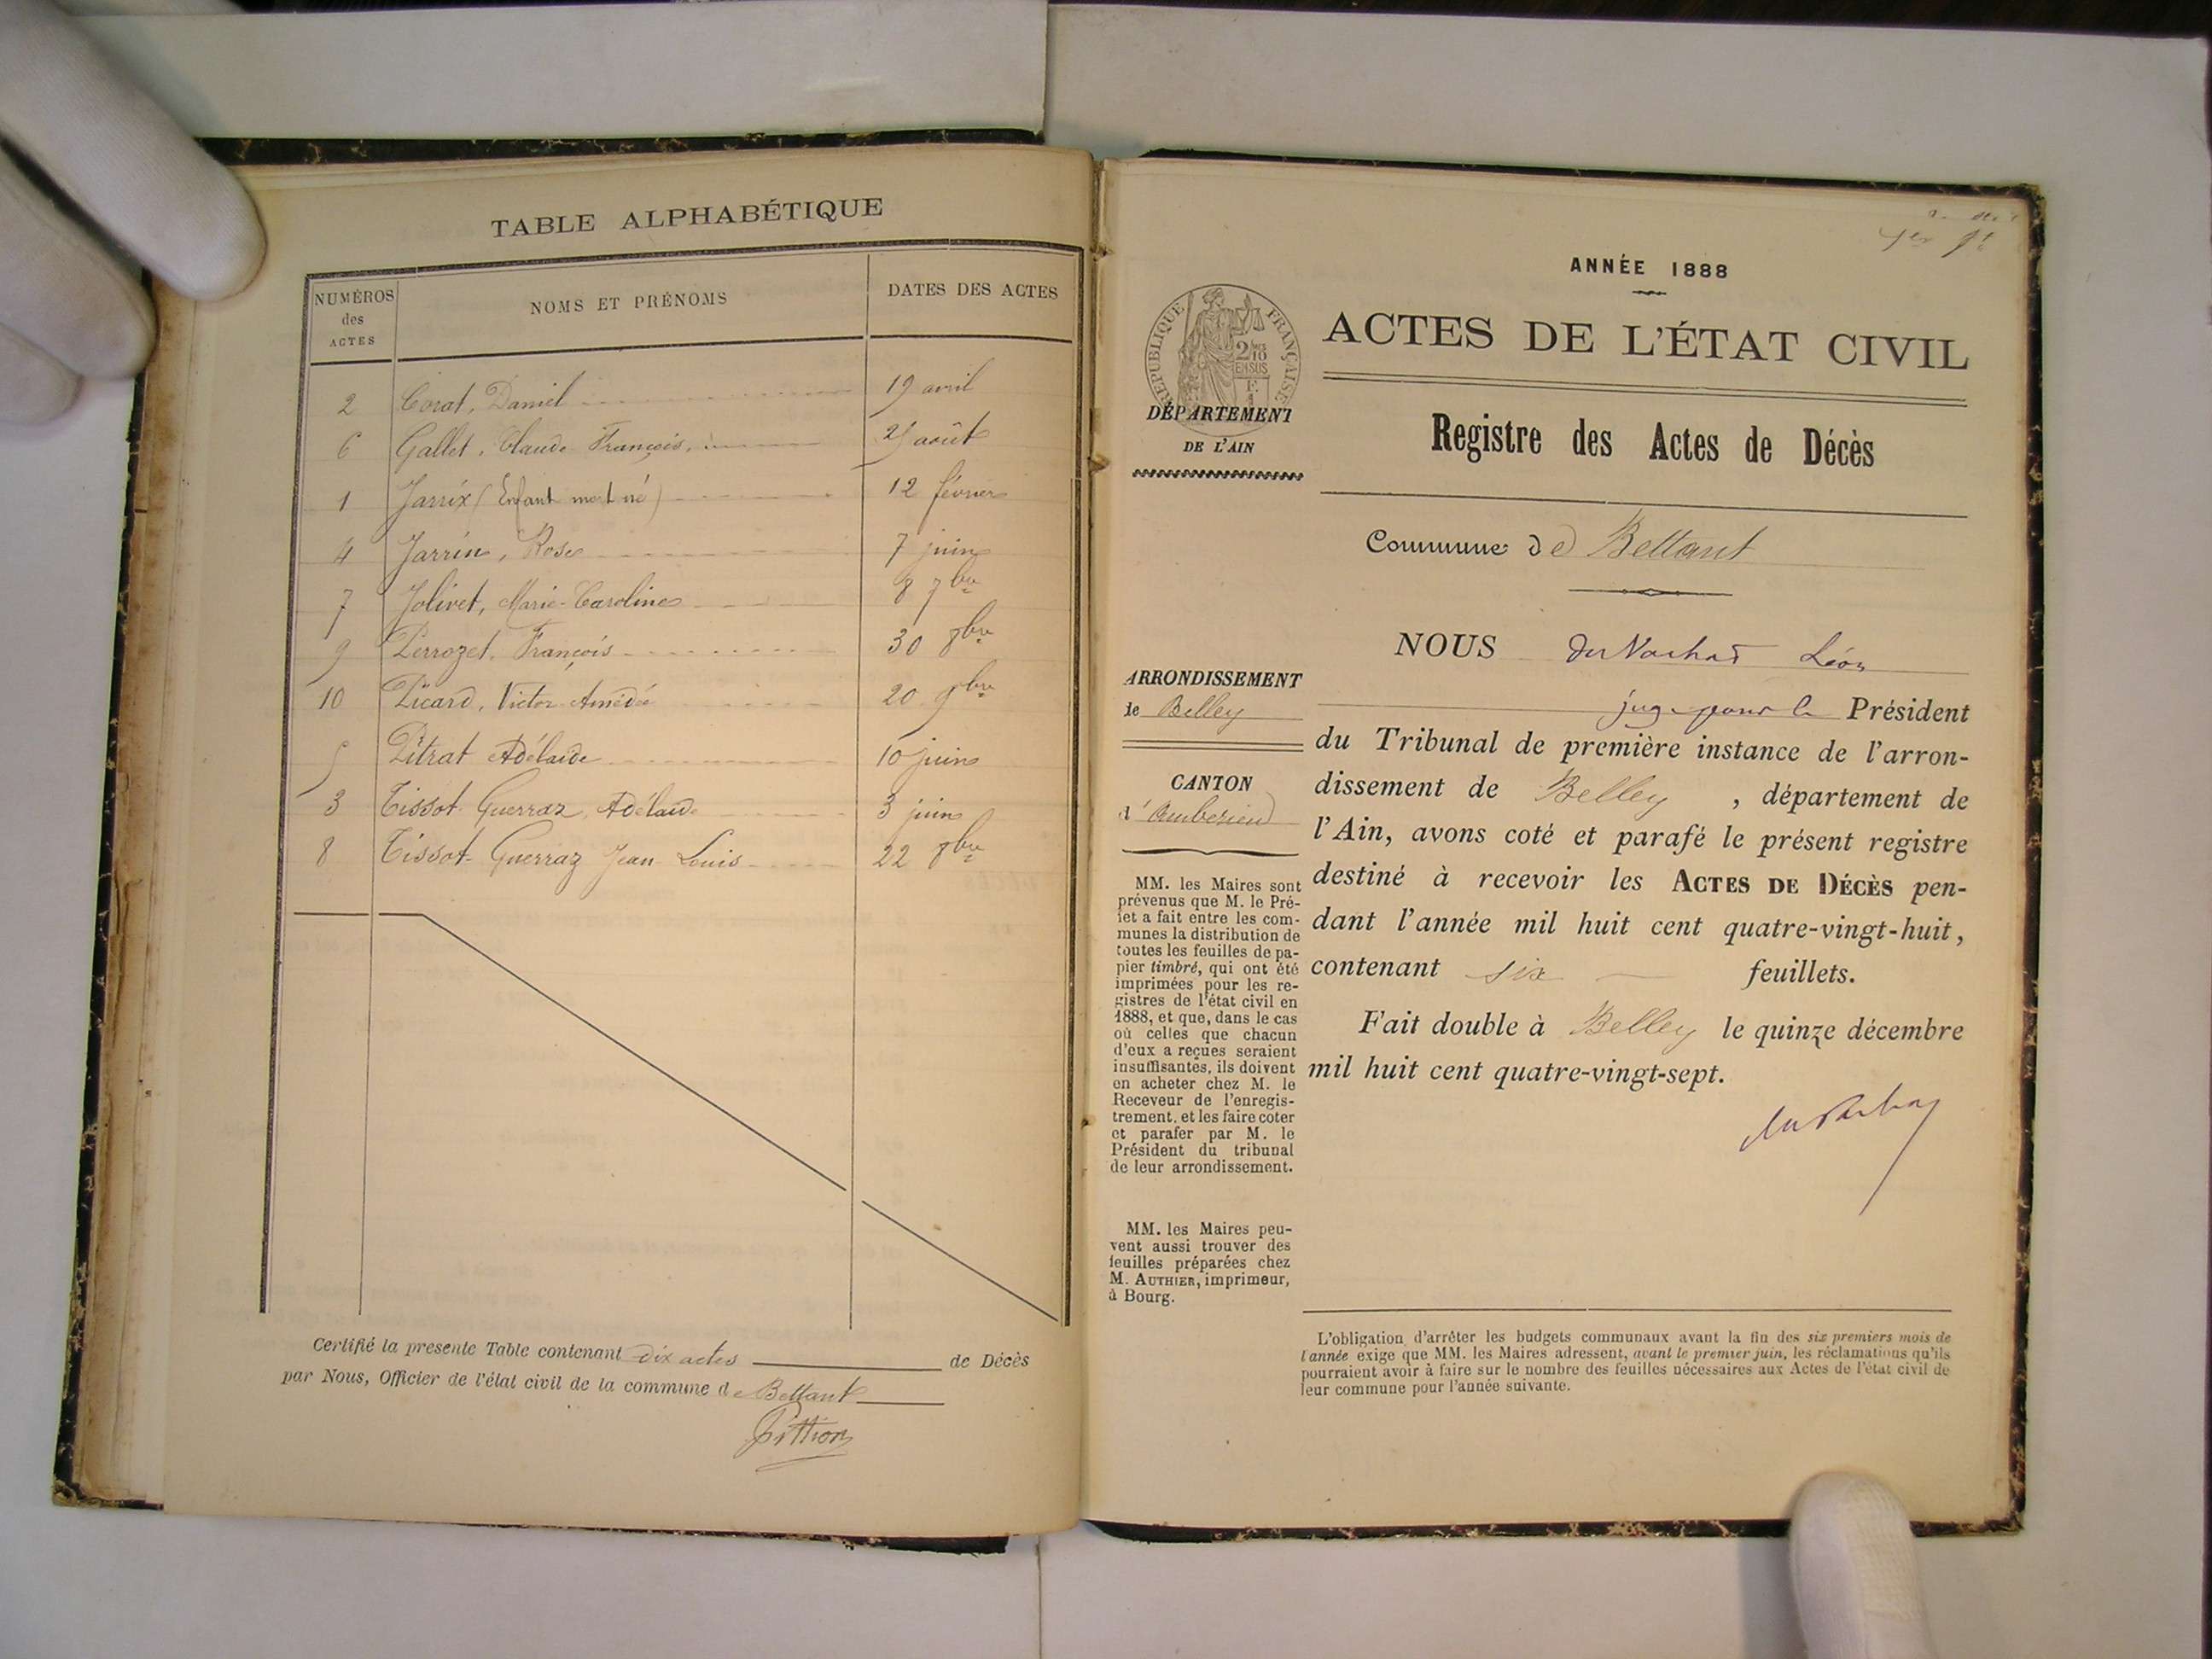 TABLE ALPHABÉTIQUE
NUMÉROS des ACTES NOMS ET PRÉNOMS DATES DES ACTES
2 Corat, Daniel 19 avril
6 Gallet, Claude François, août
1 Jarrix (Enfant mort né) 12 février
4 Jarrin, Rose 7 juin
7 Jolivet, Marie-Caroline 8 7bre
9 Perrozet, François 30 8bre
10 Picard, Victor Amédé 20 9bre
5 Pitrat Adélaïde 10 juin
3 Tissot Guerraz, Adélaïde 3 juin
8 Tissot-Guerraz Jean Louis 22 8bre
Certifié la presente Table contenant dix actes de Décès
par Nous, Officier de l'état civil de la commune de Bettant
Pittion
ANNÉE 1888
RÉPUBLIQUE FRANÇAISE
2/10 EN SUS
ACTES DE L'ÉTAT CIVIL
DÉPARTEMENT
DE L'AIN
Registre des Actes de Décès
Commune de Bettant
NOUS Léon
ARRONDISSEMENT
de Belley
CANTON
d'Ambérieu
MM. les Maires sont
prévenus que M. le Pré-
fet a fait entre les com-
munes la distribution de
toutes les feuilles de pa-
pier timbré, qui ont été
imprimées pour les re-
gistres de l'état civil en
1888, et que, dans le cas
où celles que chacun
d'eux a reçues seraient
insuffisantes, ils doivent
en acheter chez M. le
Receveur de l'enregis-
trement, et les faire coter
et parafer par M. le
Président du tribunal
de leur arrondissement.
MM. les Maires peu-
vent aussi trouver des
feuilles préparées chez
M. AUTHIER, imprimeur,
à Bourg.
juge pour le Président
du Tribunal de première instance de l'arron-
dissement de Belley, département de
l'Ain, avons coté et parafé le présent registre
destiné à recevoir les ACTES DE DÉCÈS pen-
dant l'année mil huit cent quatre-vingt-huit,
contenant six feuillets.
Fait double à Belley le quinze décembre
mil huit cent quatre-vingt-sept.
L'obligation d'arrêter les budgets communaux avant la fin des six premiers mois de
l'année exige que MM. les Maires adressent, avant le premier juin, les réclamations qu'ils
pourraient avoir à faire sur le nombre des feuilles nécessaires aux Actes de l'état civil de
leur commune pour l'année suivante.